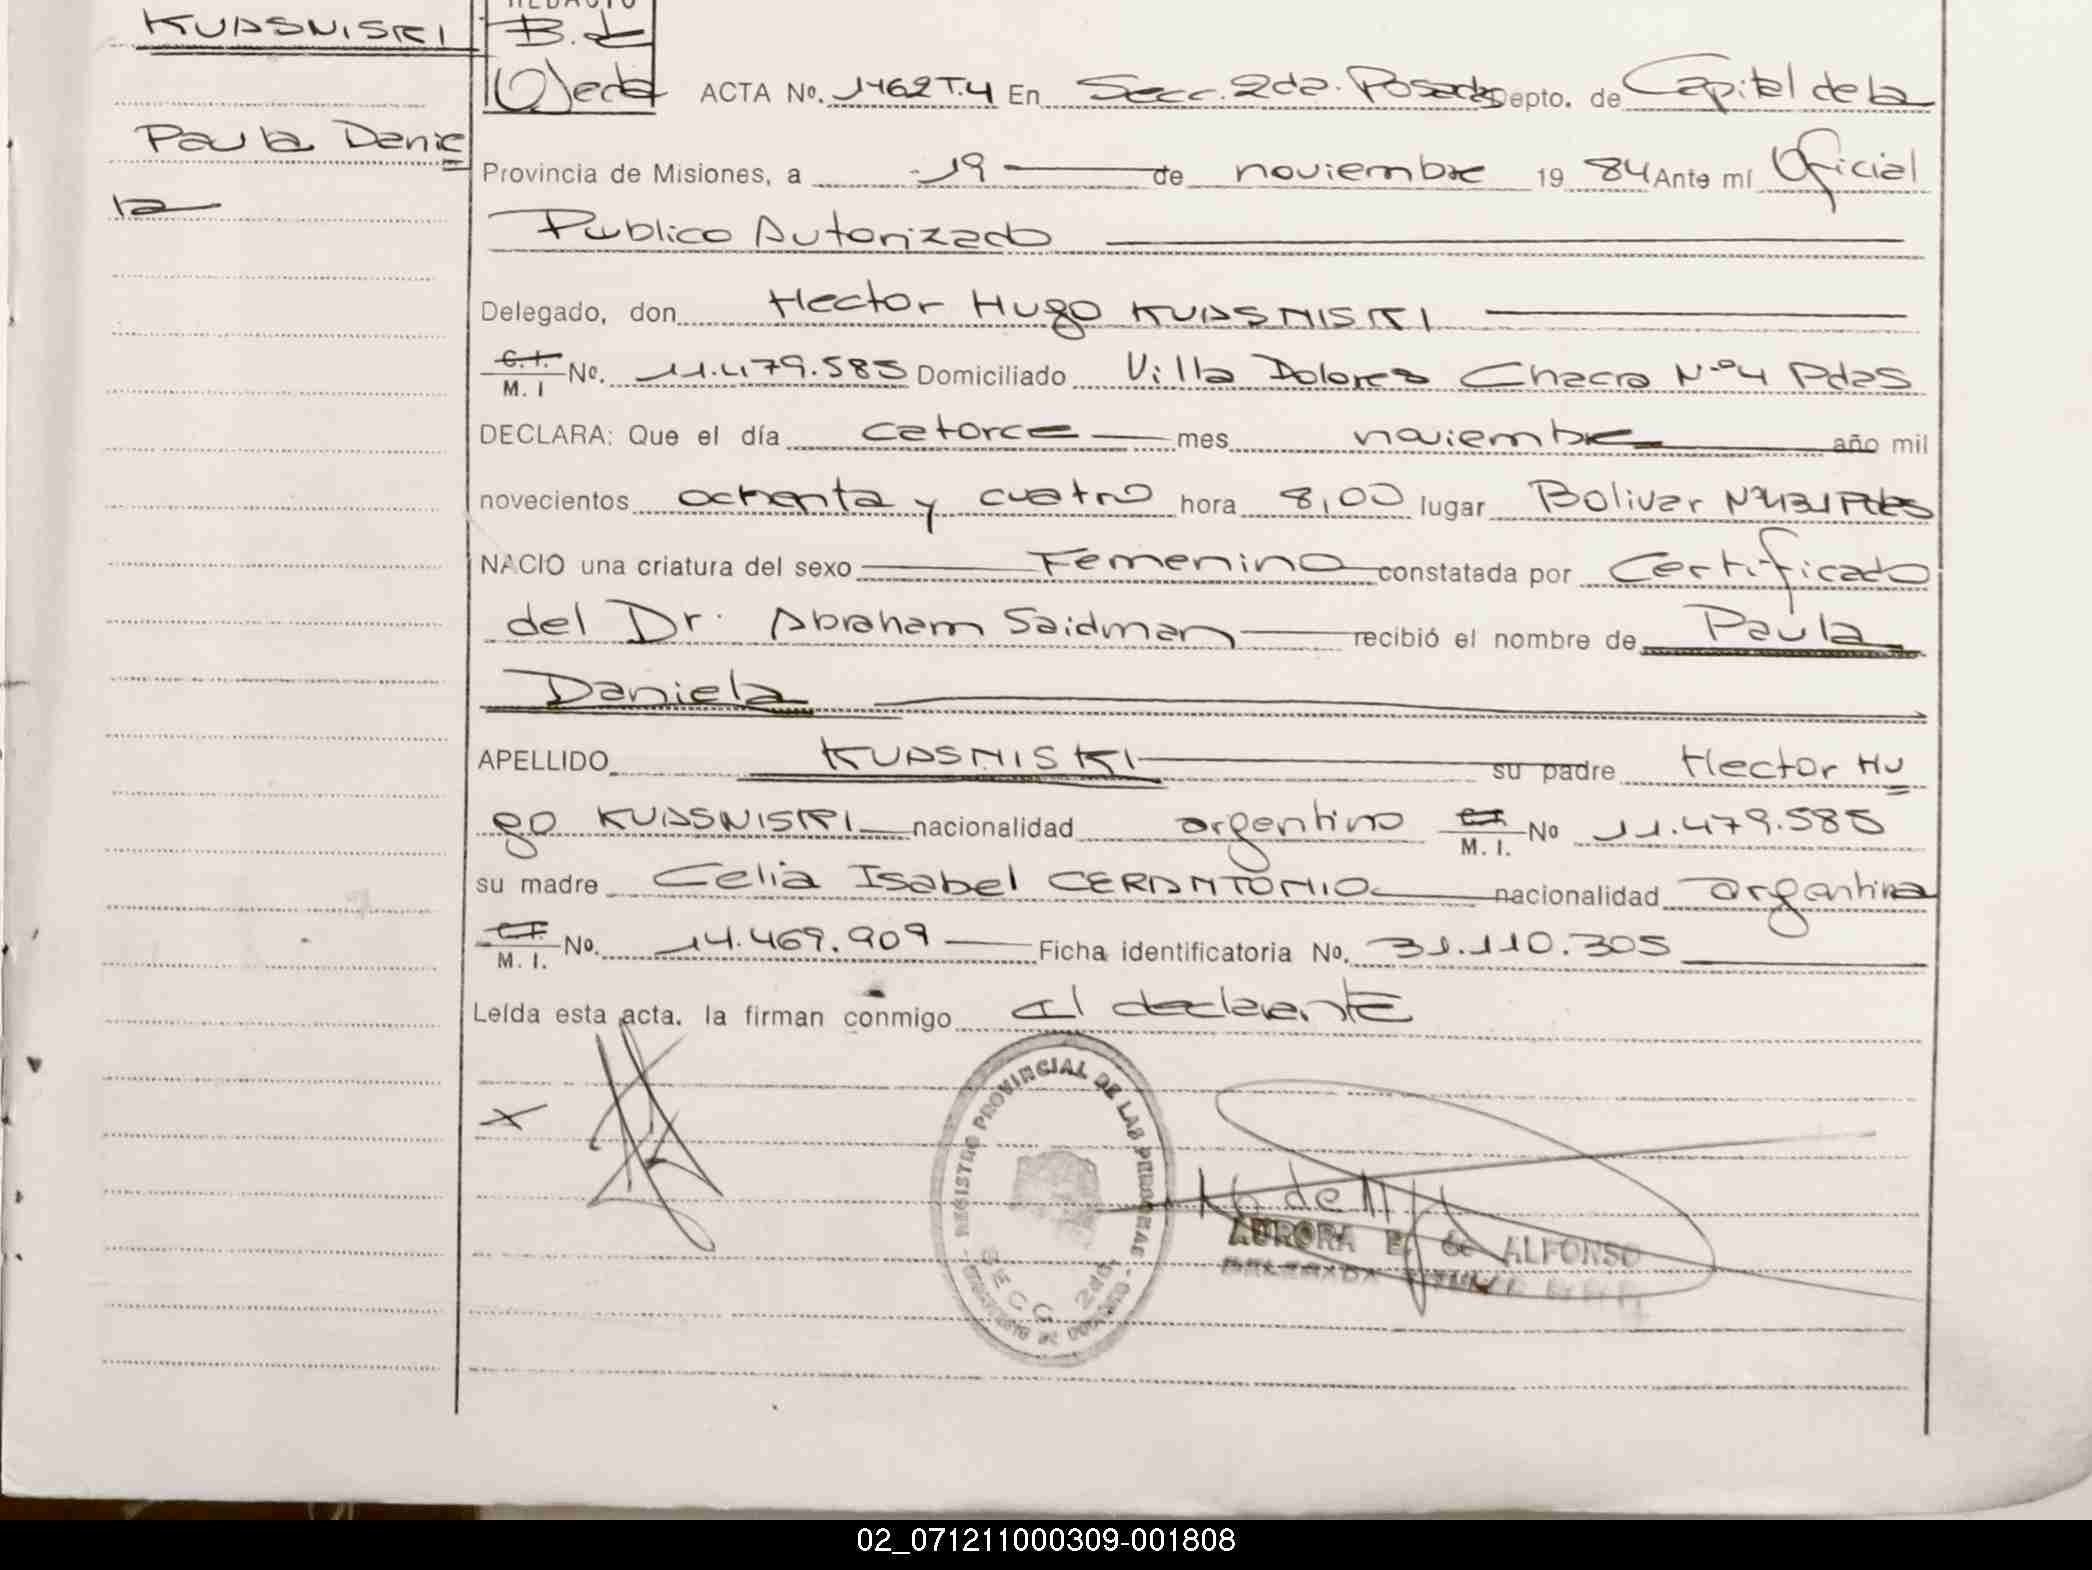 KUASNISKI
Paula Danie
la
REDACTO
B. de
Ojeda
ACTA No. 1462 T.4 En Secc. 2da. Posadas Depto. de Capital de la
Provincia de Misiones, a 19 de noviembre 19 84 Ante mí Oficial
Publico Autorizado
Delegado, don Hector Hugo KUASNISKI
C.I. M. I No. 11.479.585 Domiciliado Villa Dolores Chacra Nº4 Pdas
DECLARA: Que el día catorce mes noviembre año mil
novecientos ochenta y cuatro hora 8,00 lugar Bolivar Pdas
NACIO una criatura del sexo Femenino constatada por Certificado
del Dr. Abraham Saidman recibió el nombre de Paula
Daniela
APELLIDO KUASNISKI su padre Hector Hu
go KUASNISKI nacionalidad argentino C.I. M. I. No 11.479.585
su madre Celia Isabel CERANTONIO nacionalidad argentina
C.I. M. I. No. 14.469.909 Ficha identificatoria No. 31.110.305
Leída esta acta. la firman conmigo el declarante
REGISTRO PROVINCIAL DE LAS PERSONAS
SECC. 2da.
AURORA E. de ALFONSO
DELEGADA
02_071211000309-001808